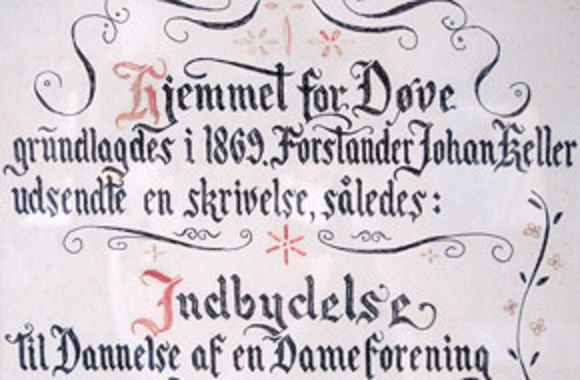 Hjemmet for Døve
grundlagdes i 1869. Forstander Johan Keller
udsendte en skrivelse, således:
Indbydelse
til Dannelse af en Dameforening